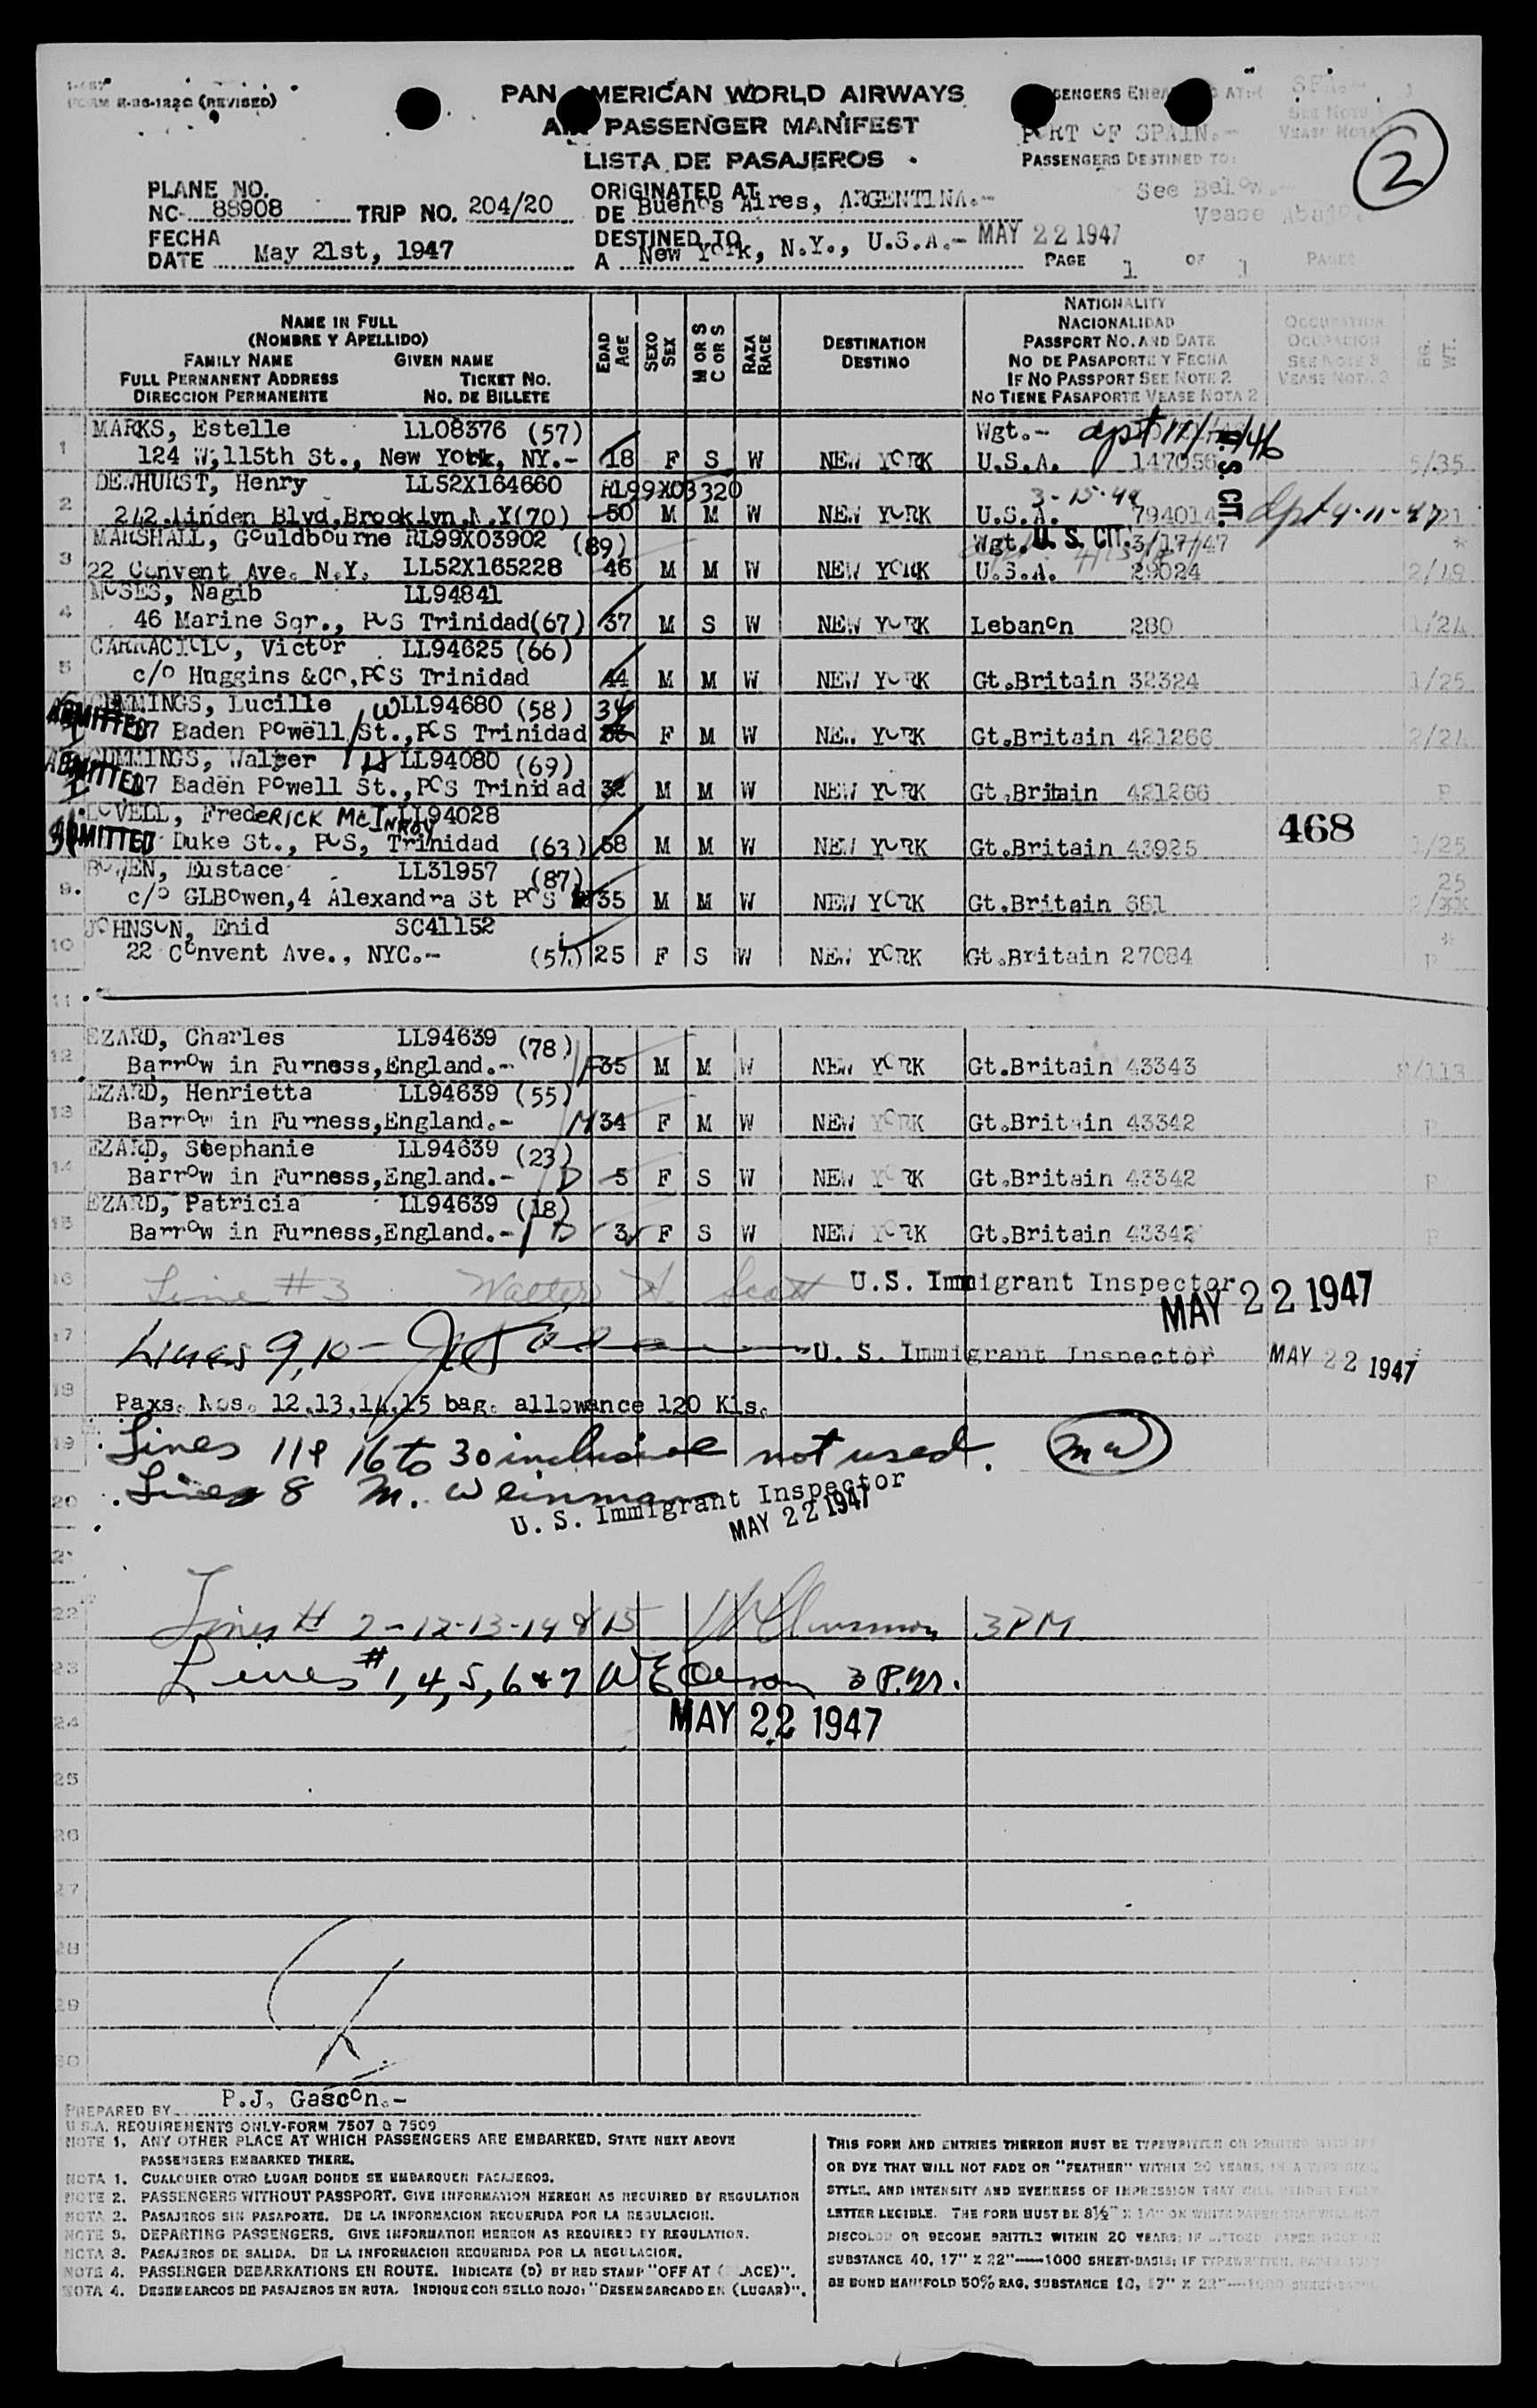 FORM R-36-122C (REVISED)
PAN AMERICAN WORLD AIRWAYS
AIR PASSENGER MANIFEST
LISTA DE PASAJEROS
PORT OF SPAIN.-
PASSENGERS DESTINED TO:
See Below.-
Vease Abajo.
2
PLANE NO.
NC- 88908 TRIP NO. 204/20
ORIGINATED AT
DE Buenos Aires, ARGENTINA.-
FECHA
DATE May 21st, 1947
DESTINED TO
A New York, N.Y., U.S.A.- MAY 22 1947
PAGE 1 OF 1 PAGES
NAME IN FULL
(NOMBRE Y APELLIDO)
FAMILY NAME GIVEN NAME
FULL PERMANENT ADDRESS TICKET NO.
DIRECCION PERMANENTE NO. DE BILLETE
EDAD AGE
SEXO SEX
M OR S C OR S
RAZA RACE
DESTINATION
DESTINO
NATIONALITY
NACIONALIDAD
PASSPORT NO. AND DATE
NO DE PASAPORTE Y FECHA
IF NO PASSPORT SEE NOTE 2
NO TIENE PASAPORTE VEASE NOTA 2
OCCUPATION
OCUPACION
SEE NOTE 3
VEASE NOTA 3
1 MARKS, Estelle LL08376 (57) Wgt.-
124 W,115th St., New York, NY.- 18 F S W NEW YORK U.S.A. 147056 5/35
U.S. CIT.
2 DEWHURST, Henry LL52X164660 RL99X03320 3-15-44
242.Linden Blvd,Brooklyn,N.Y(70) 50 M M W NEW YORK U.S.A. 794014
3 MARSHALL, Gouldbourne RL99X03902 (89) Wgt. U. S. CIT. 3/17/47 *
22 Convent Ave. N.Y. LL52X165228 46 M M W NEW YORK U.S.A. 29024 2/19
4 MOSES, Nagib LL94841
46 Marine Sqr., POS Trinidad(67) 37 M S W NEW YORK Lebanon 280 1/24
5 CARRACIOLO, Victor LL94625 (66)
c/o Huggins &Co,POS Trinidad 44 M M W NEW YORK Gt.Britain 32324 1/25
CUMMINGS, Lucille W LL94680 (58) 34
ADMITTED 107 Baden Powell St.,POS Trinidad F M W NEW YORK Gt.Britain 421266 2/24
CUMMINGS, Walter H LL94080 (69)
ADMITTED 107 Baden Powell St.,POS Trinidad 32 M M W NEW YORK Gt.Britain 421266 P
LOVELL, FredERICK McINROY LL94028
ADMITTED Duke St., POS, Trinidad (63) 58 M M W NEW YORK Gt.Britain 43925 468 1/25
9. BOWEN, Eustace LL31957 (87) 25
c/o GLBowen,4 Alexandra St POS 35 M M W NEW YORK Gt.Britain 681
10 JOHNSON, Enid SC41152 *
22 Convent Ave., NYC.- (57) 25 F S W NEW YORK Gt.Britain 27084 P
11
12 EZARD, Charles LL94639 (78)
Barrow in Furness,England.- F 35 M M W NEW YORK Gt.Britain 43343
13 EZARD, Henrietta LL94639 (55)
Barrow in Furness,England.- M 34 F M W NEW YORK Gt.Britain 43342 P
14 EZARD, Stephanie LL94639 (23)
Barrow in Furness,England.- D 5 F S W NEW YORK Gt.Britain 43342 P
15 EZARD, Patricia LL94639 (18)
Barrow in Furness,England.- D 3 F S W NEW YORK Gt.Britain 43342 P
16 Line #3 Walter H. Scott U.S. Immigrant Inspector MAY 22 1947
17 Lines 9,10 - U. S. Immigrant Inspector MAY 22 1947
18 Paxs. Nos. 12,13,14,15 bag. allowance 120 Kls.
19 Lines 11 & 16 to 30 inclusive not used. MW
20 Lines 8 M. Weinman
U. S. Immigrant Inspector
MAY 22 1947
21
22 Lines # 2-12-13-14 & 15 3 PM
23 Lines # 1,4,5,6 & 7 W E Olson 3 P.m.
24 MAY 22 1947
25
26
27
28
29
30
PREPARED BY P.J. Gascon.-
U.S.A. REQUIREMENTS ONLY-FORM 7507 & 7509
NOTE 1. ANY OTHER PLACE AT WHICH PASSENGERS ARE EMBARKED, STATE NEXT ABOVE
PASSENGERS EMBARKED THERE.
NOTA 1. CUALQUIER OTRO LUGAR DONDE SE EMBARQUEN PASAJEROS.
NOTE 2. PASSENGERS WITHOUT PASSPORT. GIVE INFORMATION HEREON AS REQUIRED BY REGULATION
NOTA 2. PASAJEROS SIN PASAPORTE. DE LA INFORMACION REQUERIDA POR LA REGULACION.
NOTE 3. DEPARTING PASSENGERS. GIVE INFORMATION HEREON AS REQUIRED BY REGULATION.
NOTA 3. PASAJEROS DE SALIDA. DE LA INFORMACION REQUERIDA POR LA REGULACION.
NOTE 4. PASSENGER DEBARKATIONS EN ROUTE. INDICATE (D) BY RED STAMP "OFF AT (PLACE)".
NOTA 4. DESEMBARCOS DE PASAJEROS EN RUTA. INDIQUE CON SELLO ROJO: "DESEMBARCADO EN (LUGAR)".
THIS FORM AND ENTRIES THEREON MUST BE TYPEWRITTEN OR PRINTED WITH INK
OR DYE THAT WILL NOT FADE OR "FEATHER" WITHIN 20 YEARS, IN A TYPE SIZE,
STYLE, AND INTENSITY AND EVENNESS OF IMPRESSION THAT WILL RENDER EVERY
LETTER LEGIBLE. THE FORM MUST BE 8½" X 14" ON WHITE PAPER THAT WILL NOT
DISCOLOR OR BECOME BRITTLE WITHIN 20 YEARS;
SUBSTANCE 40, 17" X 22"-----1000 SHEET-BASIS; IF TYPEWRITTEN, PAPER MUST
BE BOND MANIFOLD 50% RAG, SUBSTANCE 16, 17" X 22"---1000 SHEET-BASIS.